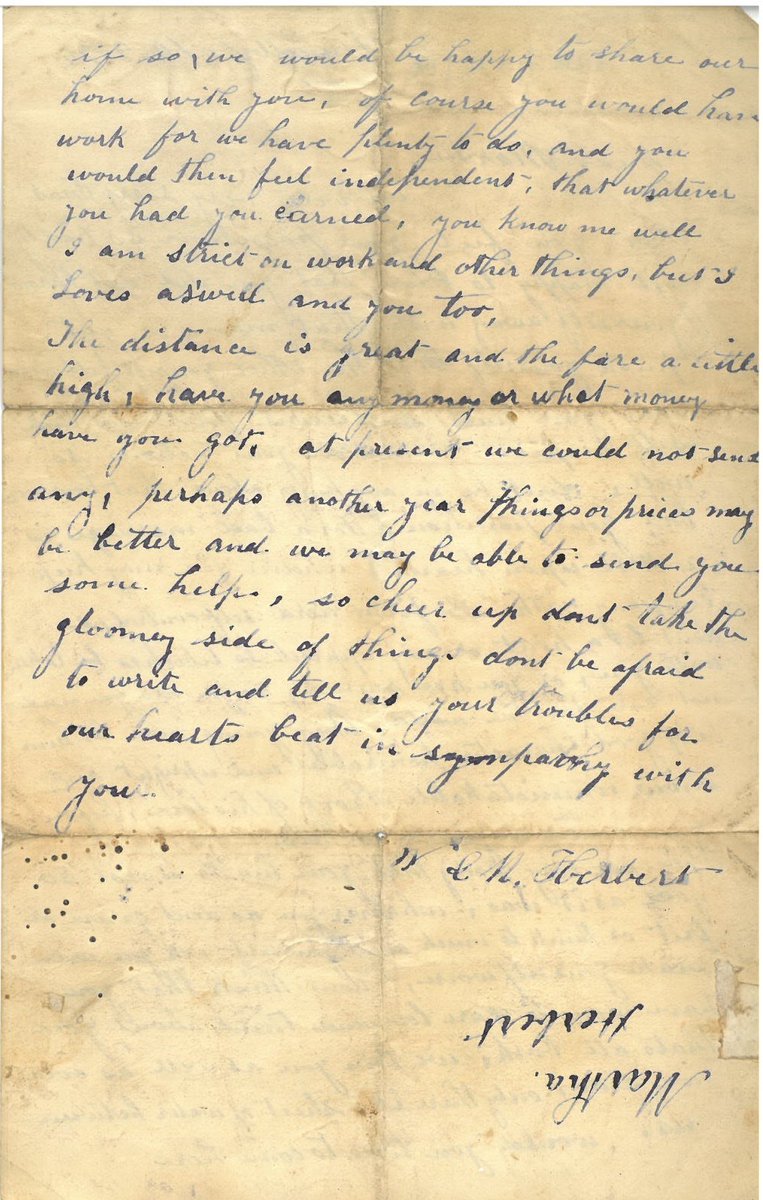 if so, we would be happy to share our
home with you, of course you would have
work for we have plenty to do, and you
would then feel independent, that whatever
you had you earned, you know me well
I am strict on work and other things, but I
Loves aswell and you too,
The distance is great and the fare a little
high, have you any money or what money
have you got, at present we could not send
any, perhaps another year things or prices may
be better and we may be able to send you
some help, so cheer up dont take the
gloomey side of things dont be afraid
to write and tell us your troubles for
our hearts beat in sympathy with
you.
Herbert
Martha.
Herbert